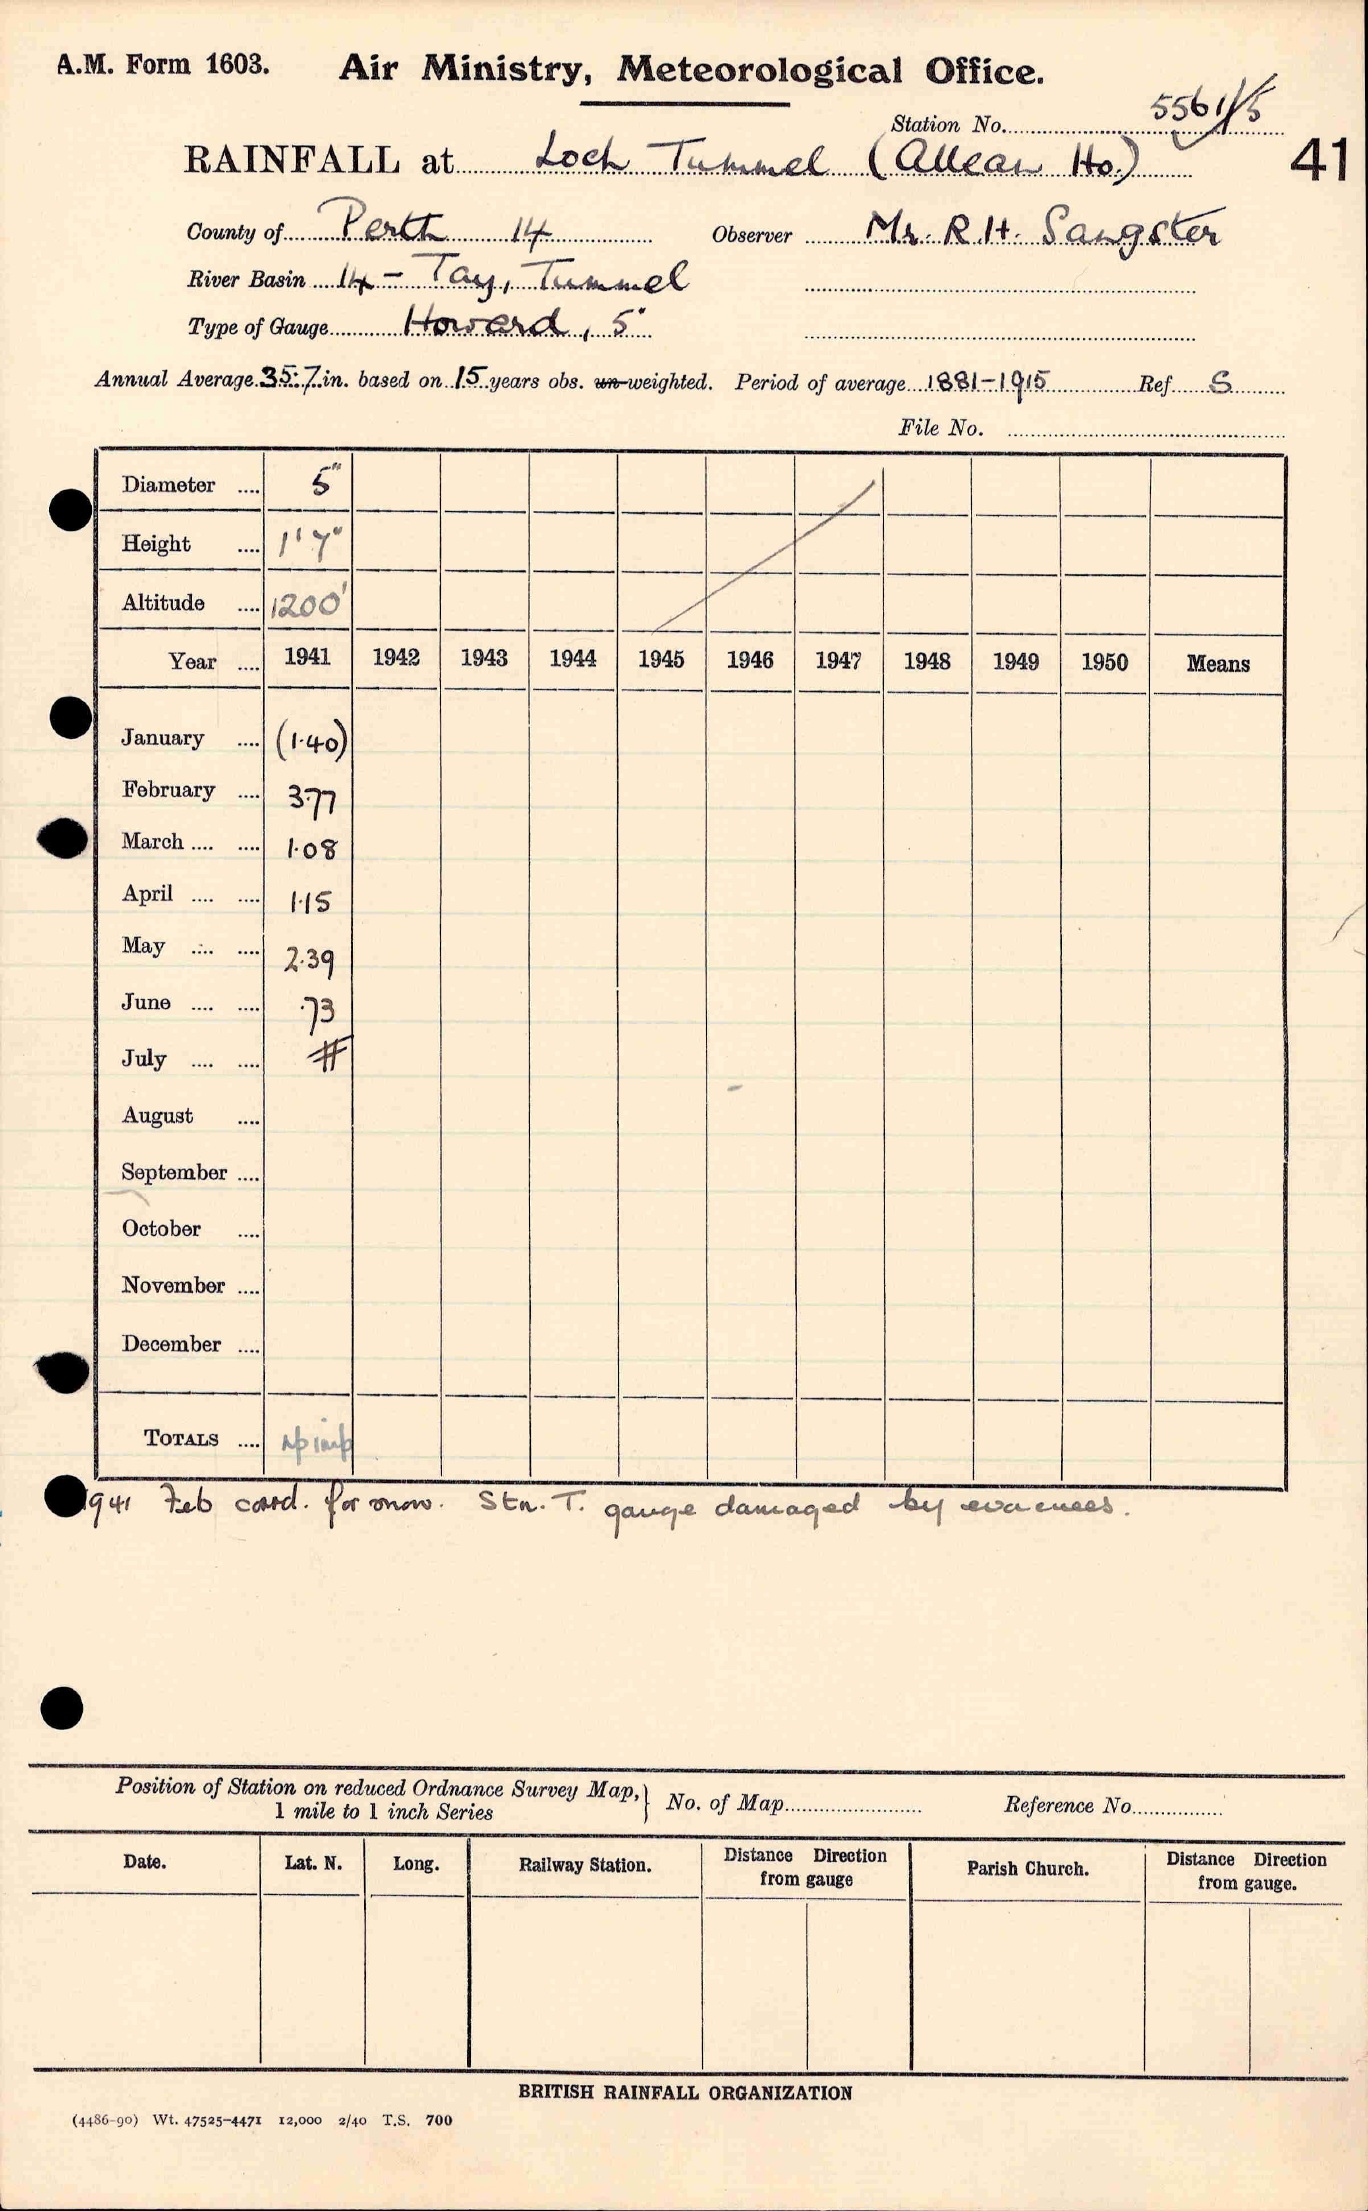 A.M. Form 1603. Air Ministry, Meteorological Office.
Station No. 5561/5
RAINFALL at Loch Tummel (Allean Ho.) 41
County of Perth 14 Observer Mr. R.H. Sangster
River Basin 14 - Tay, Tummel
Type of Gauge Howard, 5"
Annual Average 35.7 in. based on 15 years obs. un-weighted. Period of average 1881-1915 Ref S
File No.
Diameter .... 5"
Height .... 1' 7"
Altitude .... 1200'
Year .... 1941 1942 1943 1944 1945 1946 1947 1948 1949 1950 Means
January .... (1.40)
February .... 3.77
March .... .... 1.08
April .... .... 1.15
May .... .... 2.39
June .... .... .73
July .... .... #
August ....
September ....
October ....
November ....
December ....
TOTALS ....
1941 Feb corrd. for snow. Stn. T. gauge damaged by evacuees.
Position of Station on reduced Ordnance Survey Map, } No. of Map Reference No.
1 mile to 1 inch Series
Date. Lat. N. Long. Railway Station. Distance Direction from gauge Parish Church. Distance Direction from gauge.
BRITISH RAINFALL ORGANIZATION
(4486-90) Wt. 47525-4471 12,000 2/40 T.S. 700